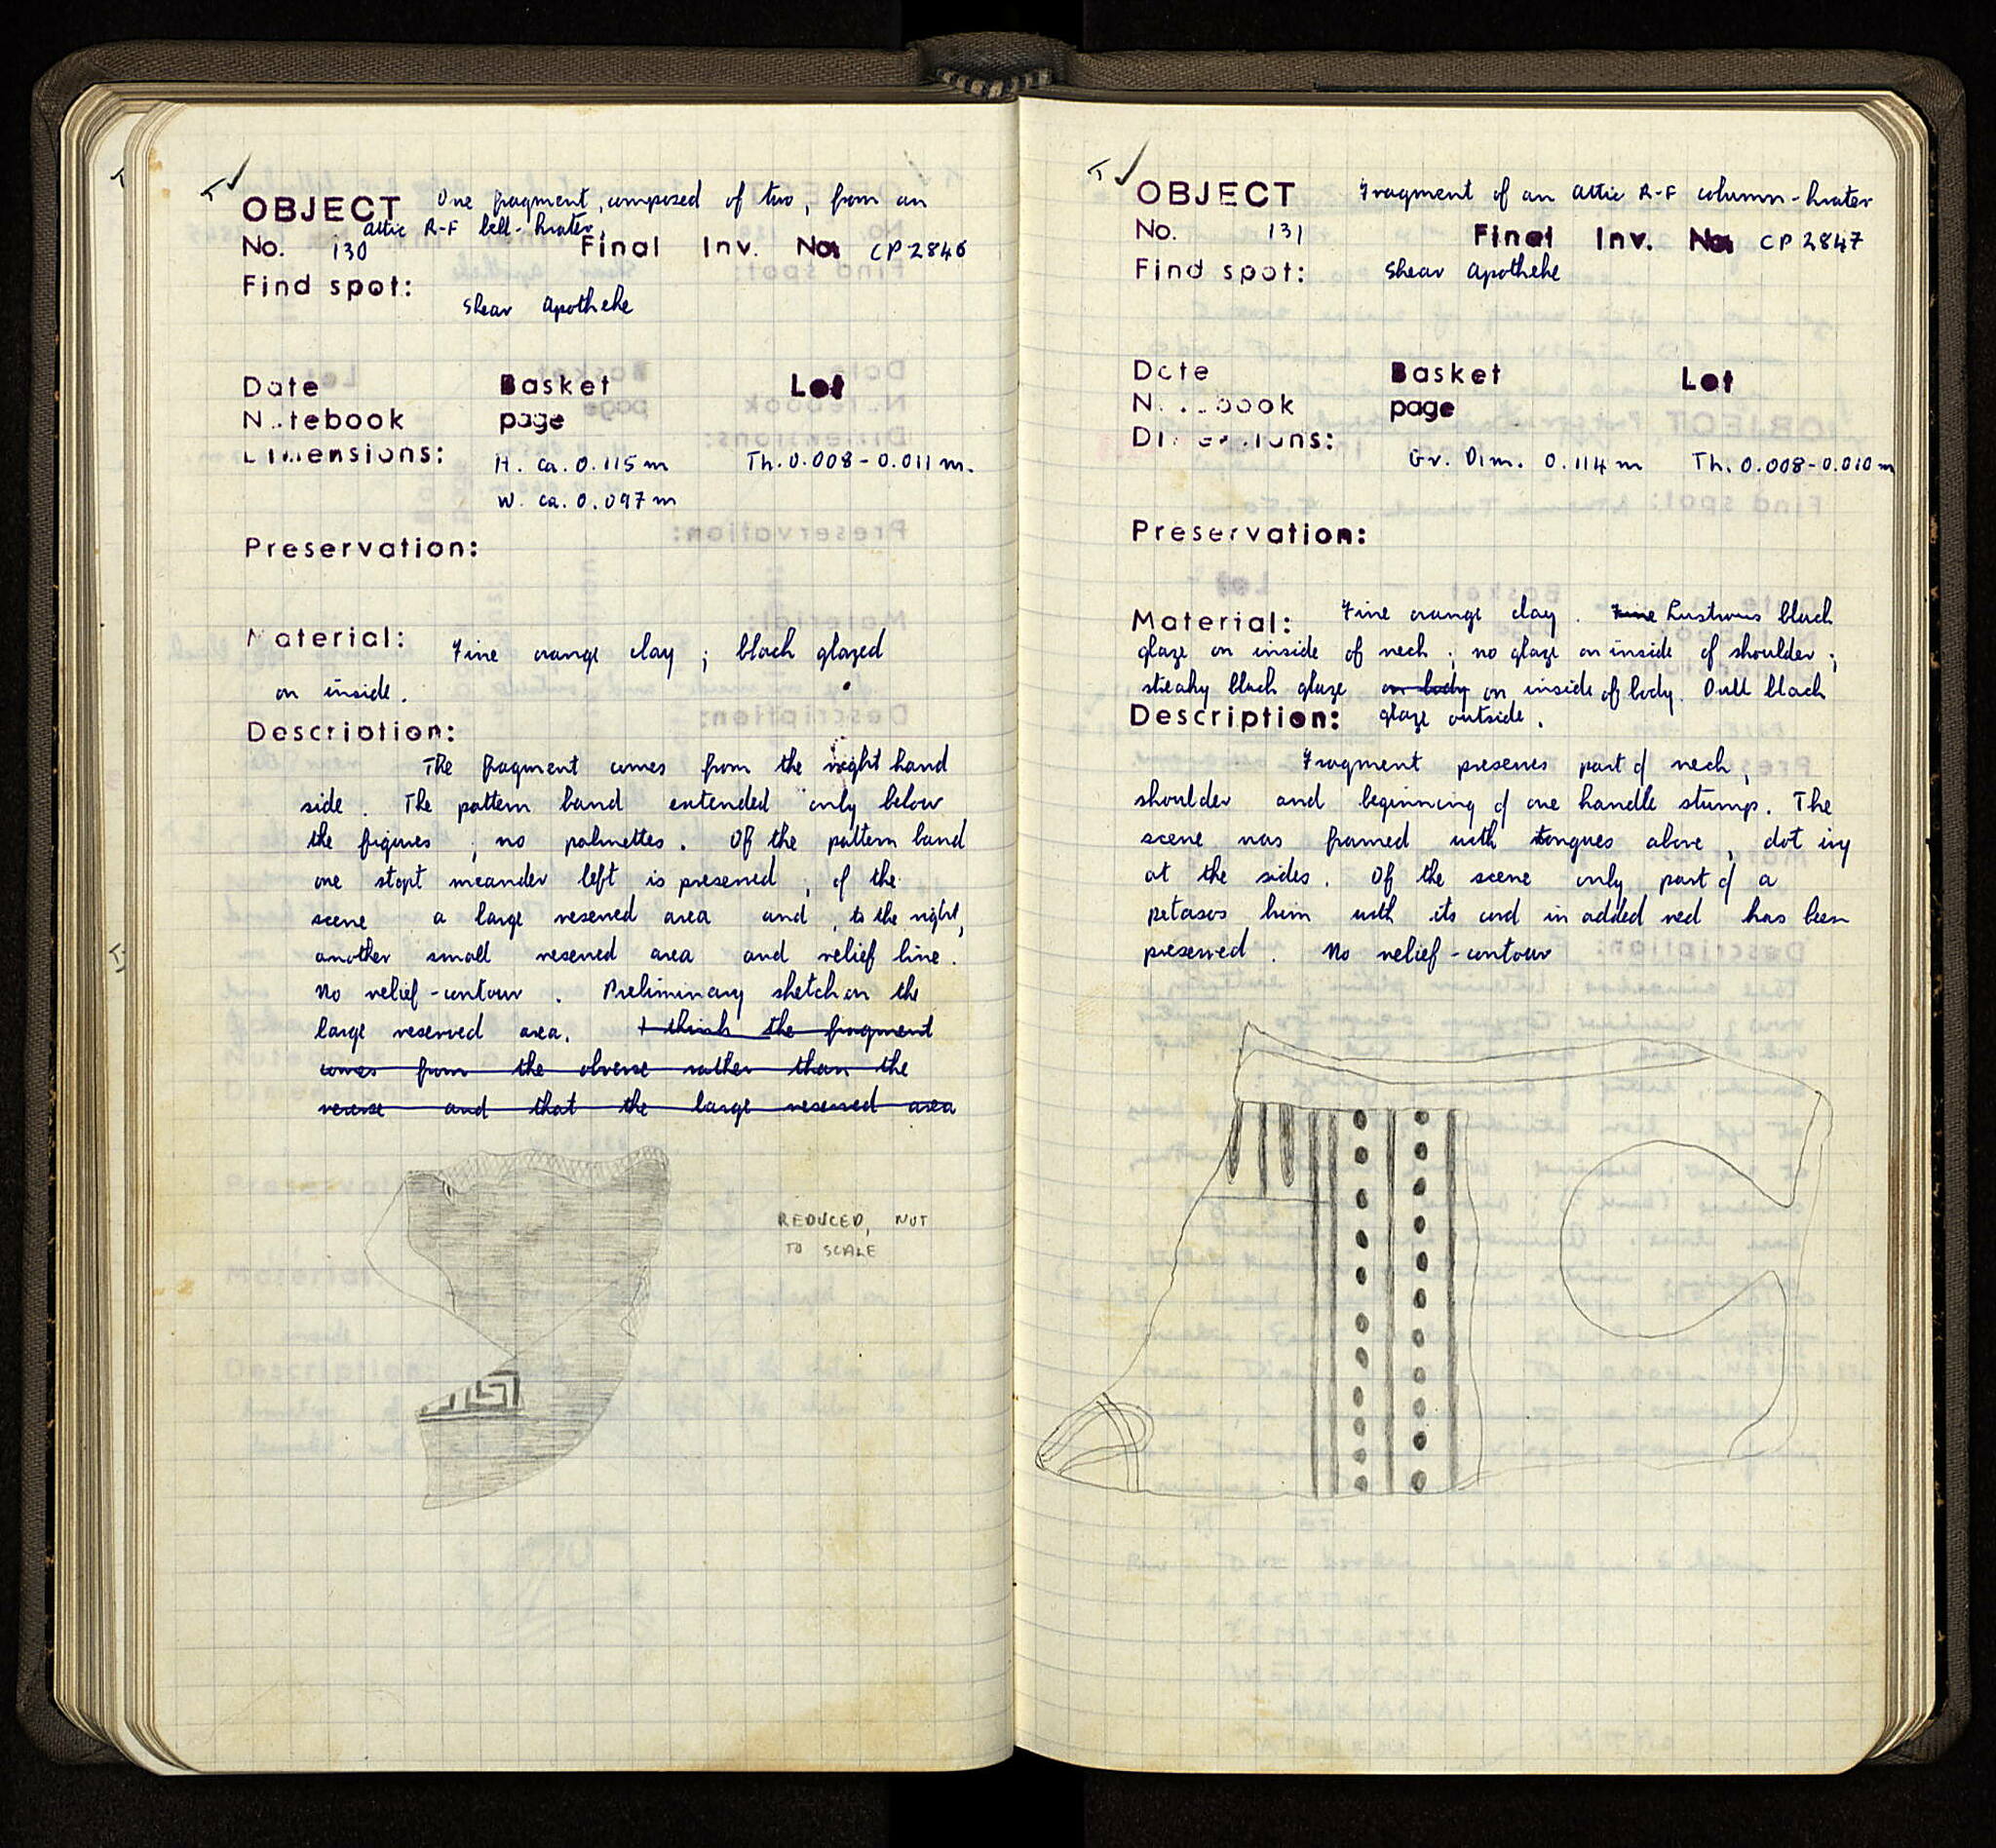 ✓ OBJECT One fragment, composed of two, from an
attic R-F bell-krater.
No. 130 Final Inv. No. CP 2846
Find spot:
Shear Apotheke
Date Basket Lot
Notebook page
Dimensions: H. ca. 0.115 m Th. 0.008 - 0.011 m.
W. ca. 0.097 m
Preservation:
Material: Fine orange clay ; black glazed
on inside.
Description:
The fragment comes from the right hand
side. The pattern band extended only below
the figures ; no palmettes. Of the pattern band
one stopt meander left is preserved ; of the
scene a large reserved area and, to the right,
another small reserved area and relief line.
No relief-contour. Preliminary sketch on the
large reserved area. I think the fragment
comes from the obverse rather than the
reverse and that the large reserved area
REDUCED, NOT
TO SCALE
✓ OBJECT Fragment of an attic R-F column-krater
No. 131 Final Inv. No. CP 2847
Find spot: Shear Apotheke
Date Basket Lot
Notebook page
Dimensions: Gr. Dim. 0.114 m Th. 0.008-0.010 m
Preservation:
Material: Fine orange clay. Fine Lustrous black
glaze on inside of neck ; no glaze on inside of shoulder ;
streaky black glaze on body on inside of body. Dull black
Description: glaze outside.
Fragment preserves part of neck,
shoulder and beginning of one handle stump. The
scene was framed with tongues above, dot ivy
at the sides. Of the scene only part of a
petasos brim with its cord in added red has been
preserved. No relief-contour